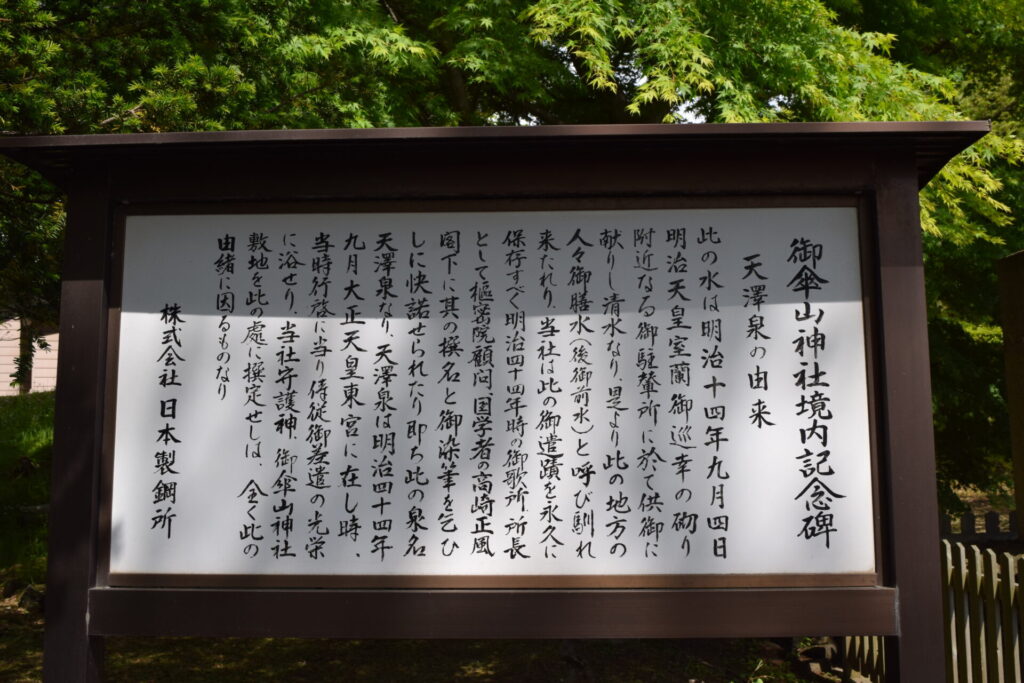 御傘山神社境内記念碑
天澤泉の由来
此の水は明治十四年九月四日
明治天皇室蘭御巡幸の砌り
附近なる御駐輦所に於て供御に
献りし清水なり、是より此の地方の
人々御膳水(後御前水)と呼び馴れ
来たれり、当社は此の御遺蹟を永久に
保存すべく明治四十四年時の御歌所、所長
として樞密院顧問、国学者の高崎正風
閣下に其の撰名と御染筆を乞ひ
しに快諾せられたり即ち此の泉名
天澤泉なり、天澤泉は明治四十四年
九月大正天皇東宮に在し時、
当時行啓に当り侍従御差遣の光栄
に浴せり、当社守護神、御傘山神社
敷地を此の處に撰定せしは、全く此の
由緒に因るものなり
株式会社 日本製鋼所